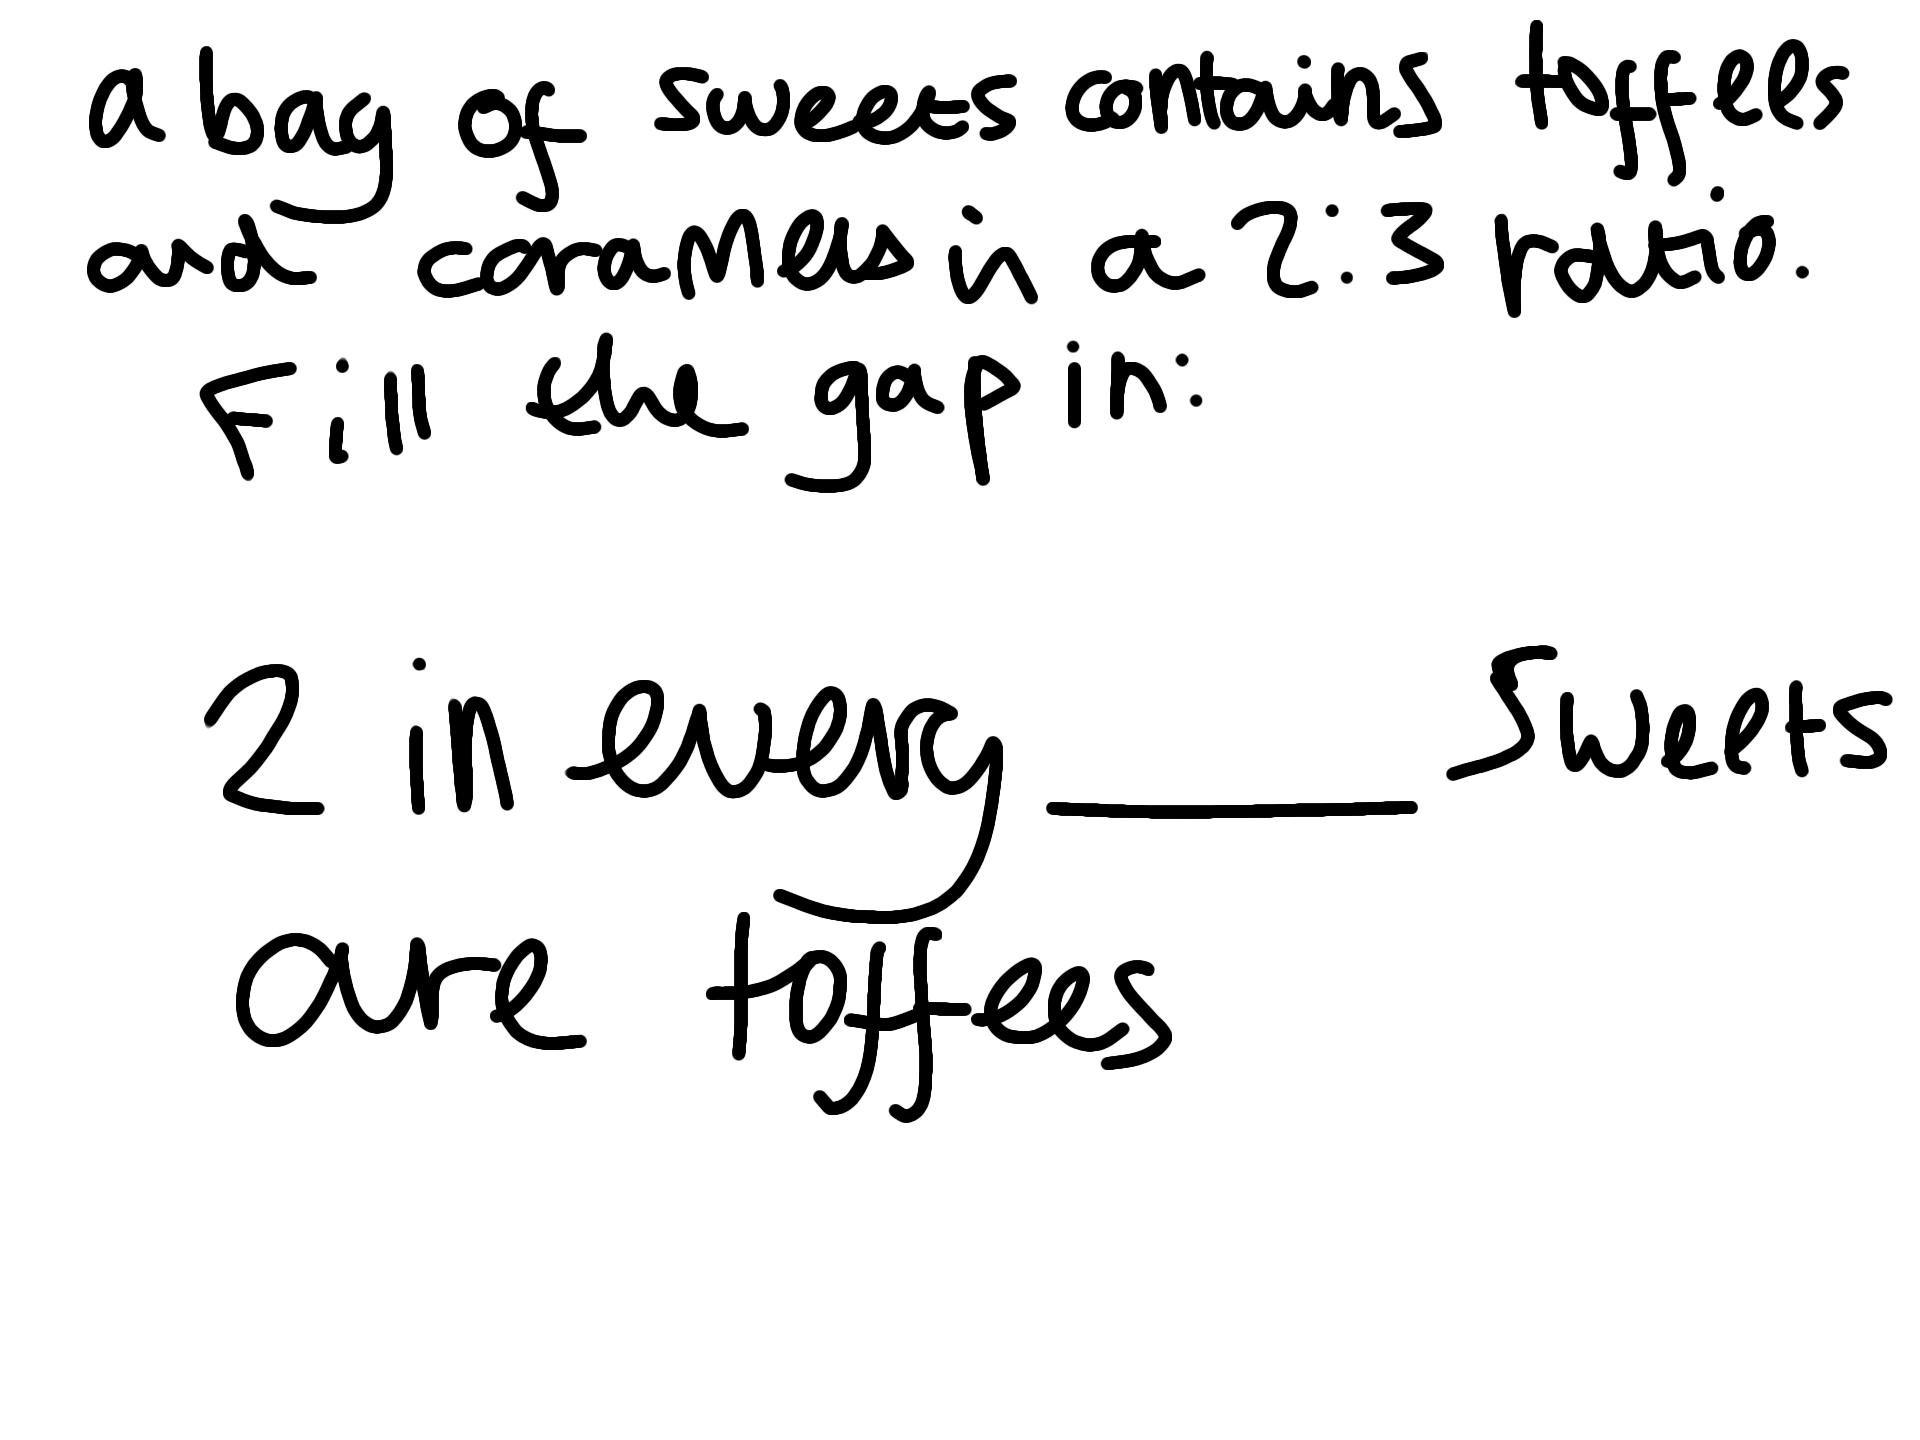 a bag of sweets contains toffees
and caramels in a 2:3 ratio.
Fill the gap in:
2 in every ______ sweets
are toffees